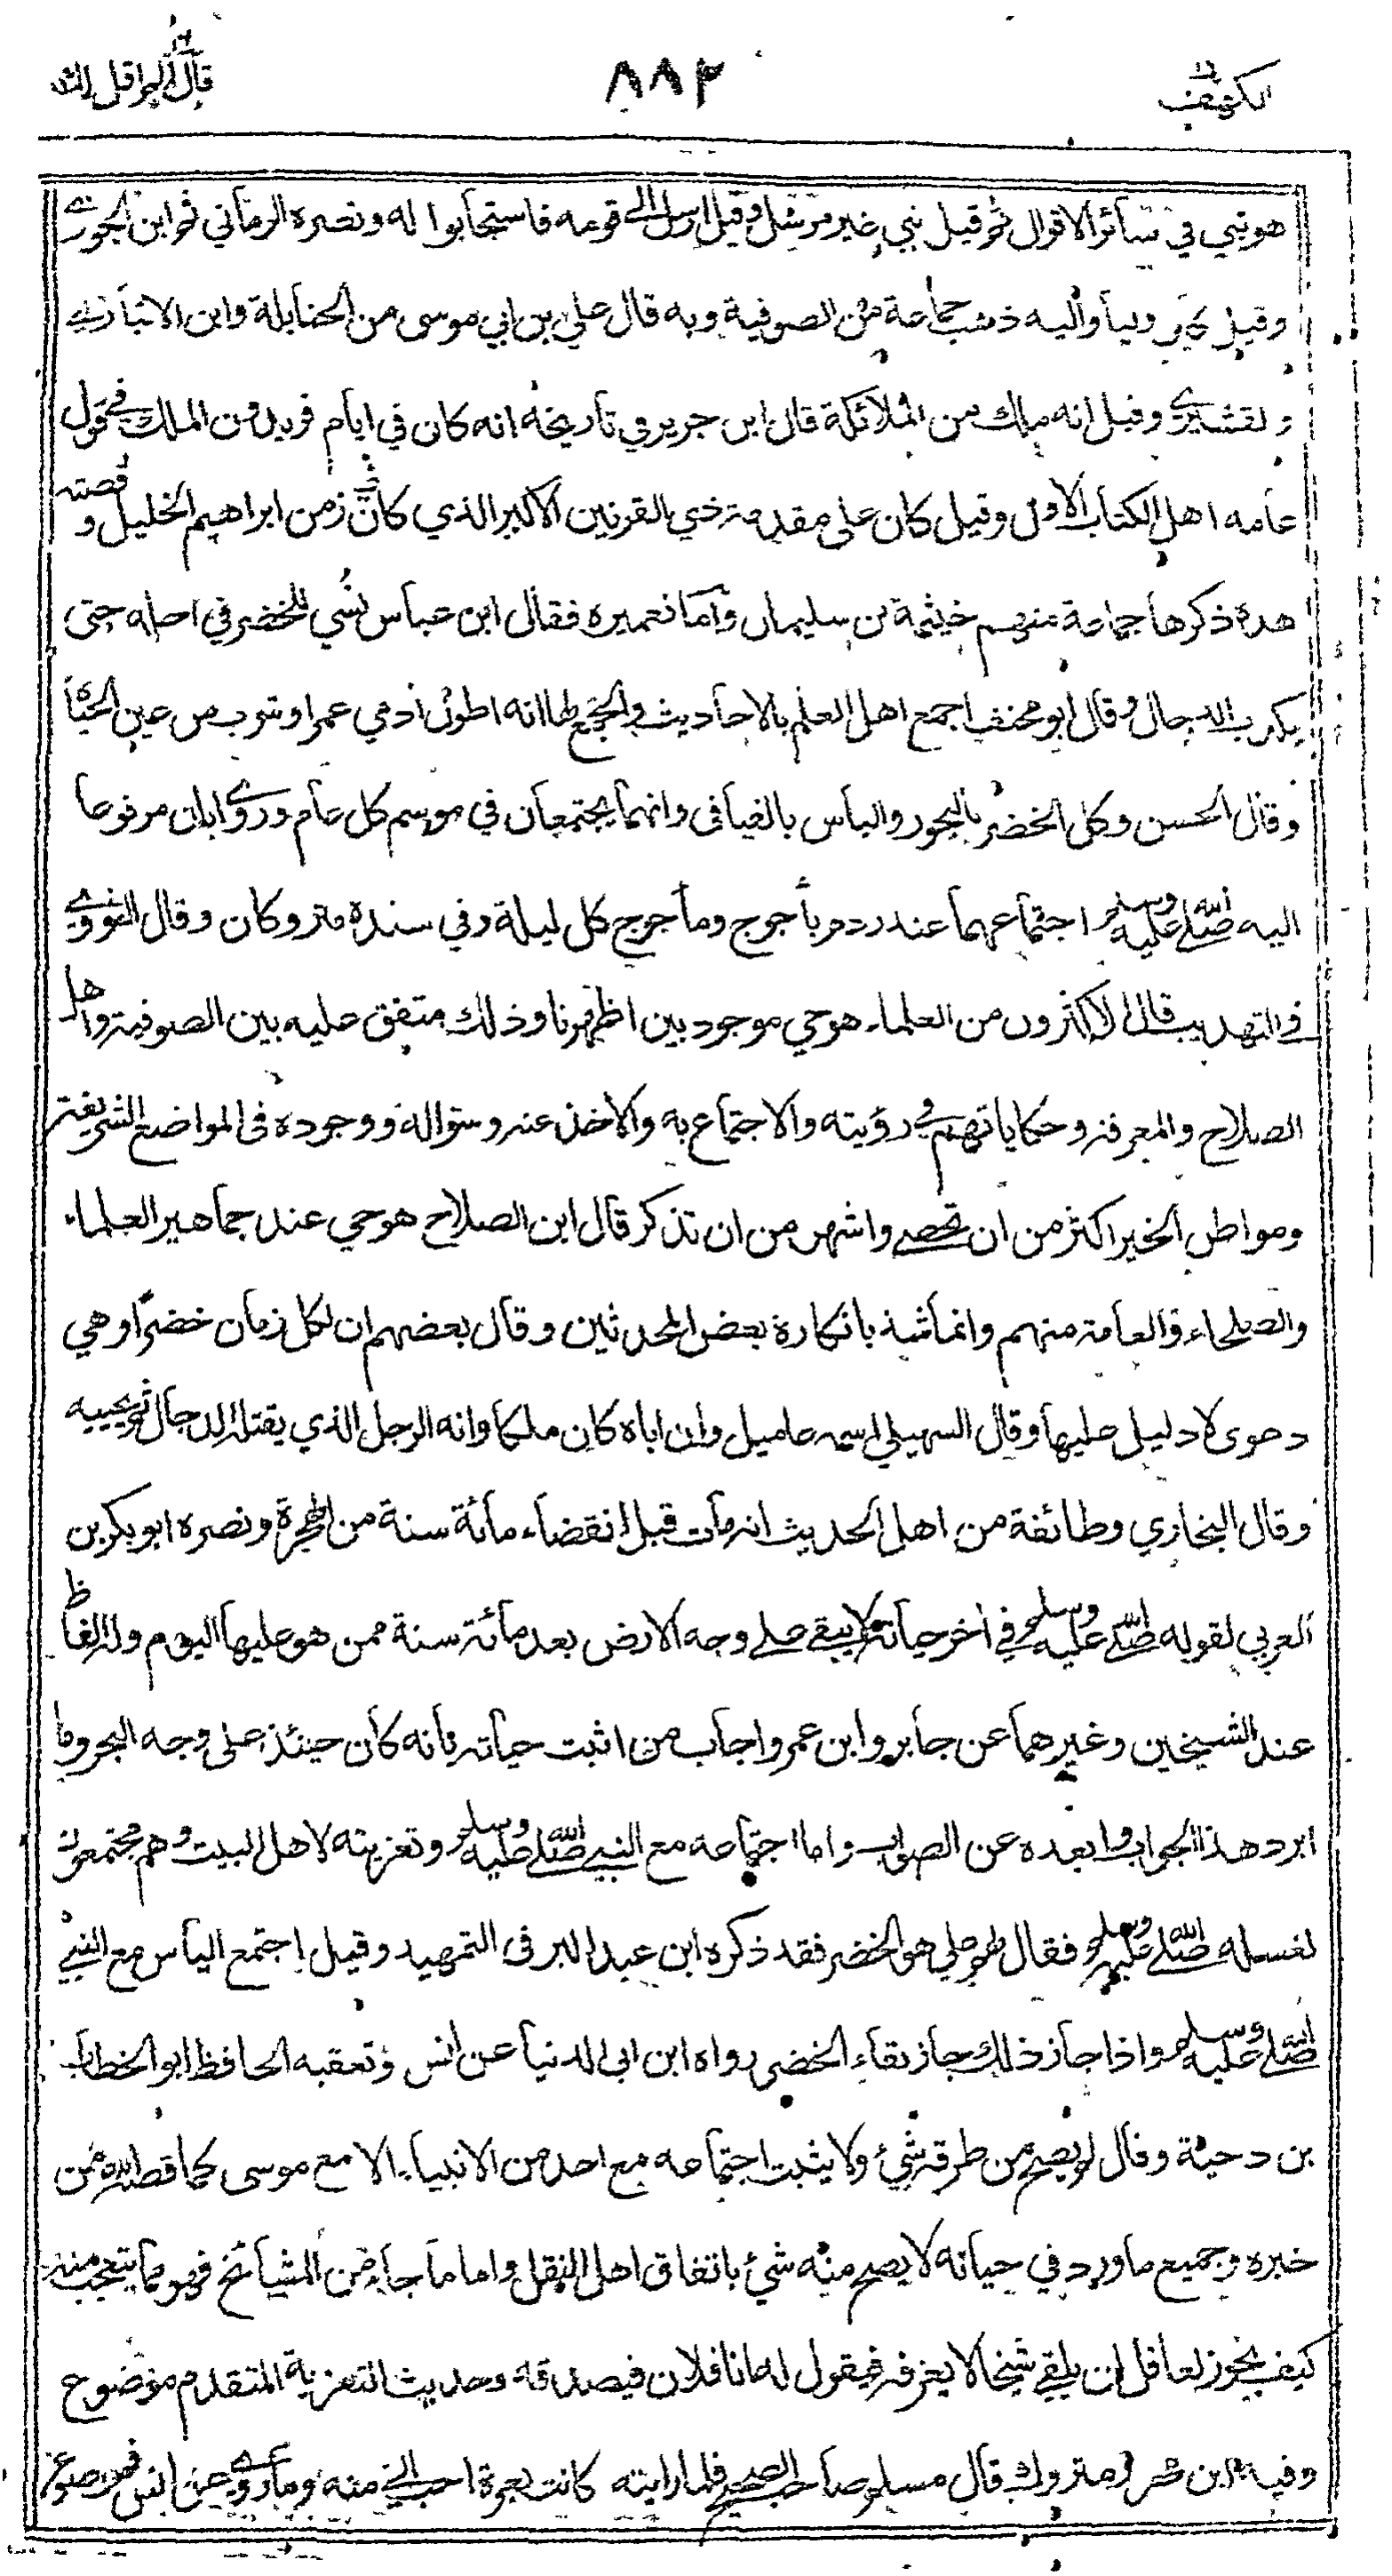 الكهف
٨٨٢
قال الم اقل لك
هو نبي في سائر الاقوال ثم قيل نبي غير مرسل وقيل ارسل الى قومه فاستجابوا له ونصره الرماني ثم ابن الجوزي
وقيل كان وليا واليه ذهب جماعة من الصوفية وبه قال علي بن ابي موسى من الحنابلة وابن الانباري
والقشيري وقيل انه ملك من الملائكة قال ابن جرير في تاريخه انه كان في ايام فريدون الملك في قول
عامه اهل الكتاب الاول وقيل كان على مقدمة ذي القرنين الاكبر الذي كان زمن ابراهيم الخليل و قصته
هذه ذكرها جماعة منهم خيثمة بن سليمان واما تعميره فقال ابن عباس نسي للخضر في اجله حتى
يكذب الدجال وقال ابو مخنف اجمع اهل العلم بالاحاديث والجمع لها انه اطول آدمي عمرا وشرب من عين الحياة
وقال الحسن وكل الخضر بالبحور والياس بالفيافي وانهما يجتمعان في موسم كل عام وروى ابان مرفوعا
اليه صلى الله عليه وسلم اجتماعهما عند ردم يأجوج ومأجوج كل ليلة وفي سنده متروكان وقال النووي
في التهذيب قال الاكثرون من العلماء هو حي موجود بين اظهرنا وذلك متفق عليه بين الصوفية واهل
الصلاح والمعرفة وحكاياتهم في رؤيته والاجتماع به والاخذ عنه وسؤاله ووجوده في المواضع الشريفة
ومواطن الخير اكثر من ان تحصى واشهر من ان تذكر قال ابن الصلاح هو حي عند جماهير العلماء
والصلحاء والعامة منهم وانما شذ بانكاره بعض المحدثين وقال بعضهم ان لكل زمان خضرا وهي
دعوى لا دليل عليها وقال السهيلي اسمه عاميل وان اباه كان ملكا وانه الرجل الذي يقتله الدجال ثم يحييه
وقال البخاري وطائفة من اهل الحديث انه مات قبل انقضاء مائة سنة من الهجرة ونصره ابو بكر بن
العربي لقوله صلى الله عليه وسلم في آخر حياته لا يبقى على وجه الارض بعد مائة سنة ممن هو عليها اليوم وله الفاظ
عند الشيخين وغيرهما عن جابر وابن عمر واجاب من اثبت حياته بانه كان حينئذ على وجه البحر وما
ابرد هذا الجواب وابعده عن الصواب واما اجتماعه مع النبي صلى الله عليه وسلم وتعزيته لاهل البيت وهم مجتمعون
لغسله صلى الله عليه وسلم فقال لهم علي هو الخضر فقد ذكره ابن عبد البر في التمهيد وقيل اجتمع الياس مع النبي
صلى الله عليه وسلم واذا جاز ذلك جاز بقاء الخضر رواه ابن ابي الدنيا عن انس وتعقبه الحافظ ابو الخطاب
بن دحية وقال لم يصح من طرقه شيء ولا يثبت اجتماعه مع احد من الانبياء الا مع موسى كما قصه الله من
خبره وجميع ما ورد في حياته لا يصح منه شئ باتفاق اهل النقل واما ما جاء من المشائخ فهو مما يتعجب منه
كيف يجوز لعاقل ان يلقى شيخا لا يعرفه فيقول له انا فلان فيصدقه وحديث التعزية المتقدم موضوع
وفيه ابن محرر متروك قال مسلم صاحب الصحيح فلما رايته كانت بعرة احب الي منه وما روي عن انس فموضوع